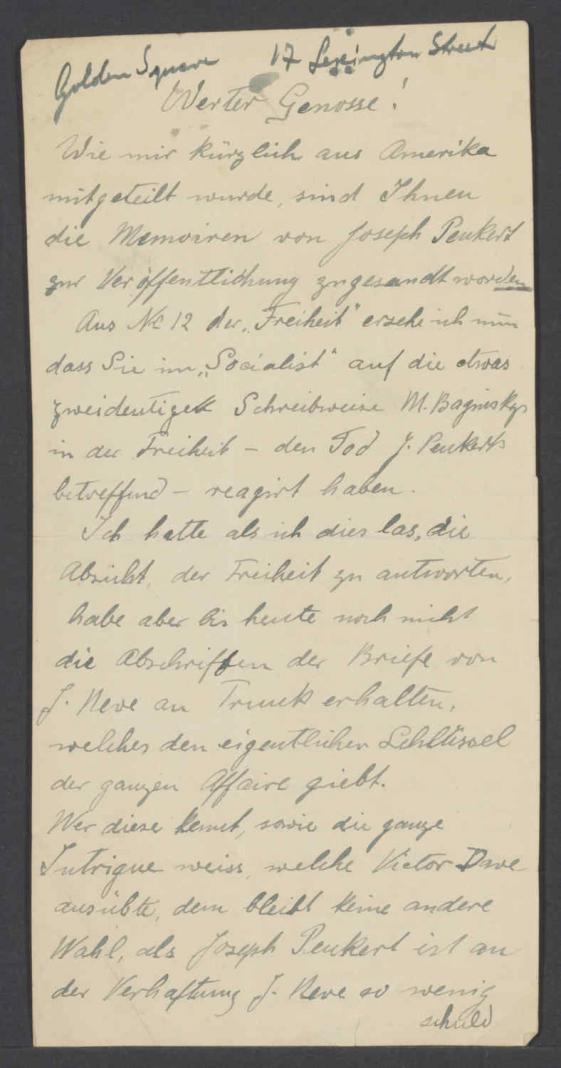 Golden Square 17 Lexington Street
Werter Genosse!
Wie mir kürzlich aus Amerika
mitgeteilt wurde, sind Ihnen
die Memoiren von Joseph Peukert
zur Veröffentlichung zugesandt worden
Aus No 12 der „Freiheit“ ersehe ich nun
dass Sie im „Socialist“ auf die etwas
zweideutige Schreibweise M. Baginskys
in der Freiheit – den Tod J. Peukerts
betreffend – reagirt haben.
Ich hatte als ich dies las, die
Absicht, der Freiheit zu antworten,
habe aber bis heute noch nicht
die Abschriften der Briefe von
J. Neve an Trunk erhalten,
welches den eigentlichen Schlüssel
der ganzen Affaire giebt.
Wer diese kennt, sowie die ganze
Intrigue weiss, welche Victor Dave
ausübte, dem bleibt keine andere
Wahl, als Joseph Peukert ist an
der Verhaftung J. Neve so wenig
schuld